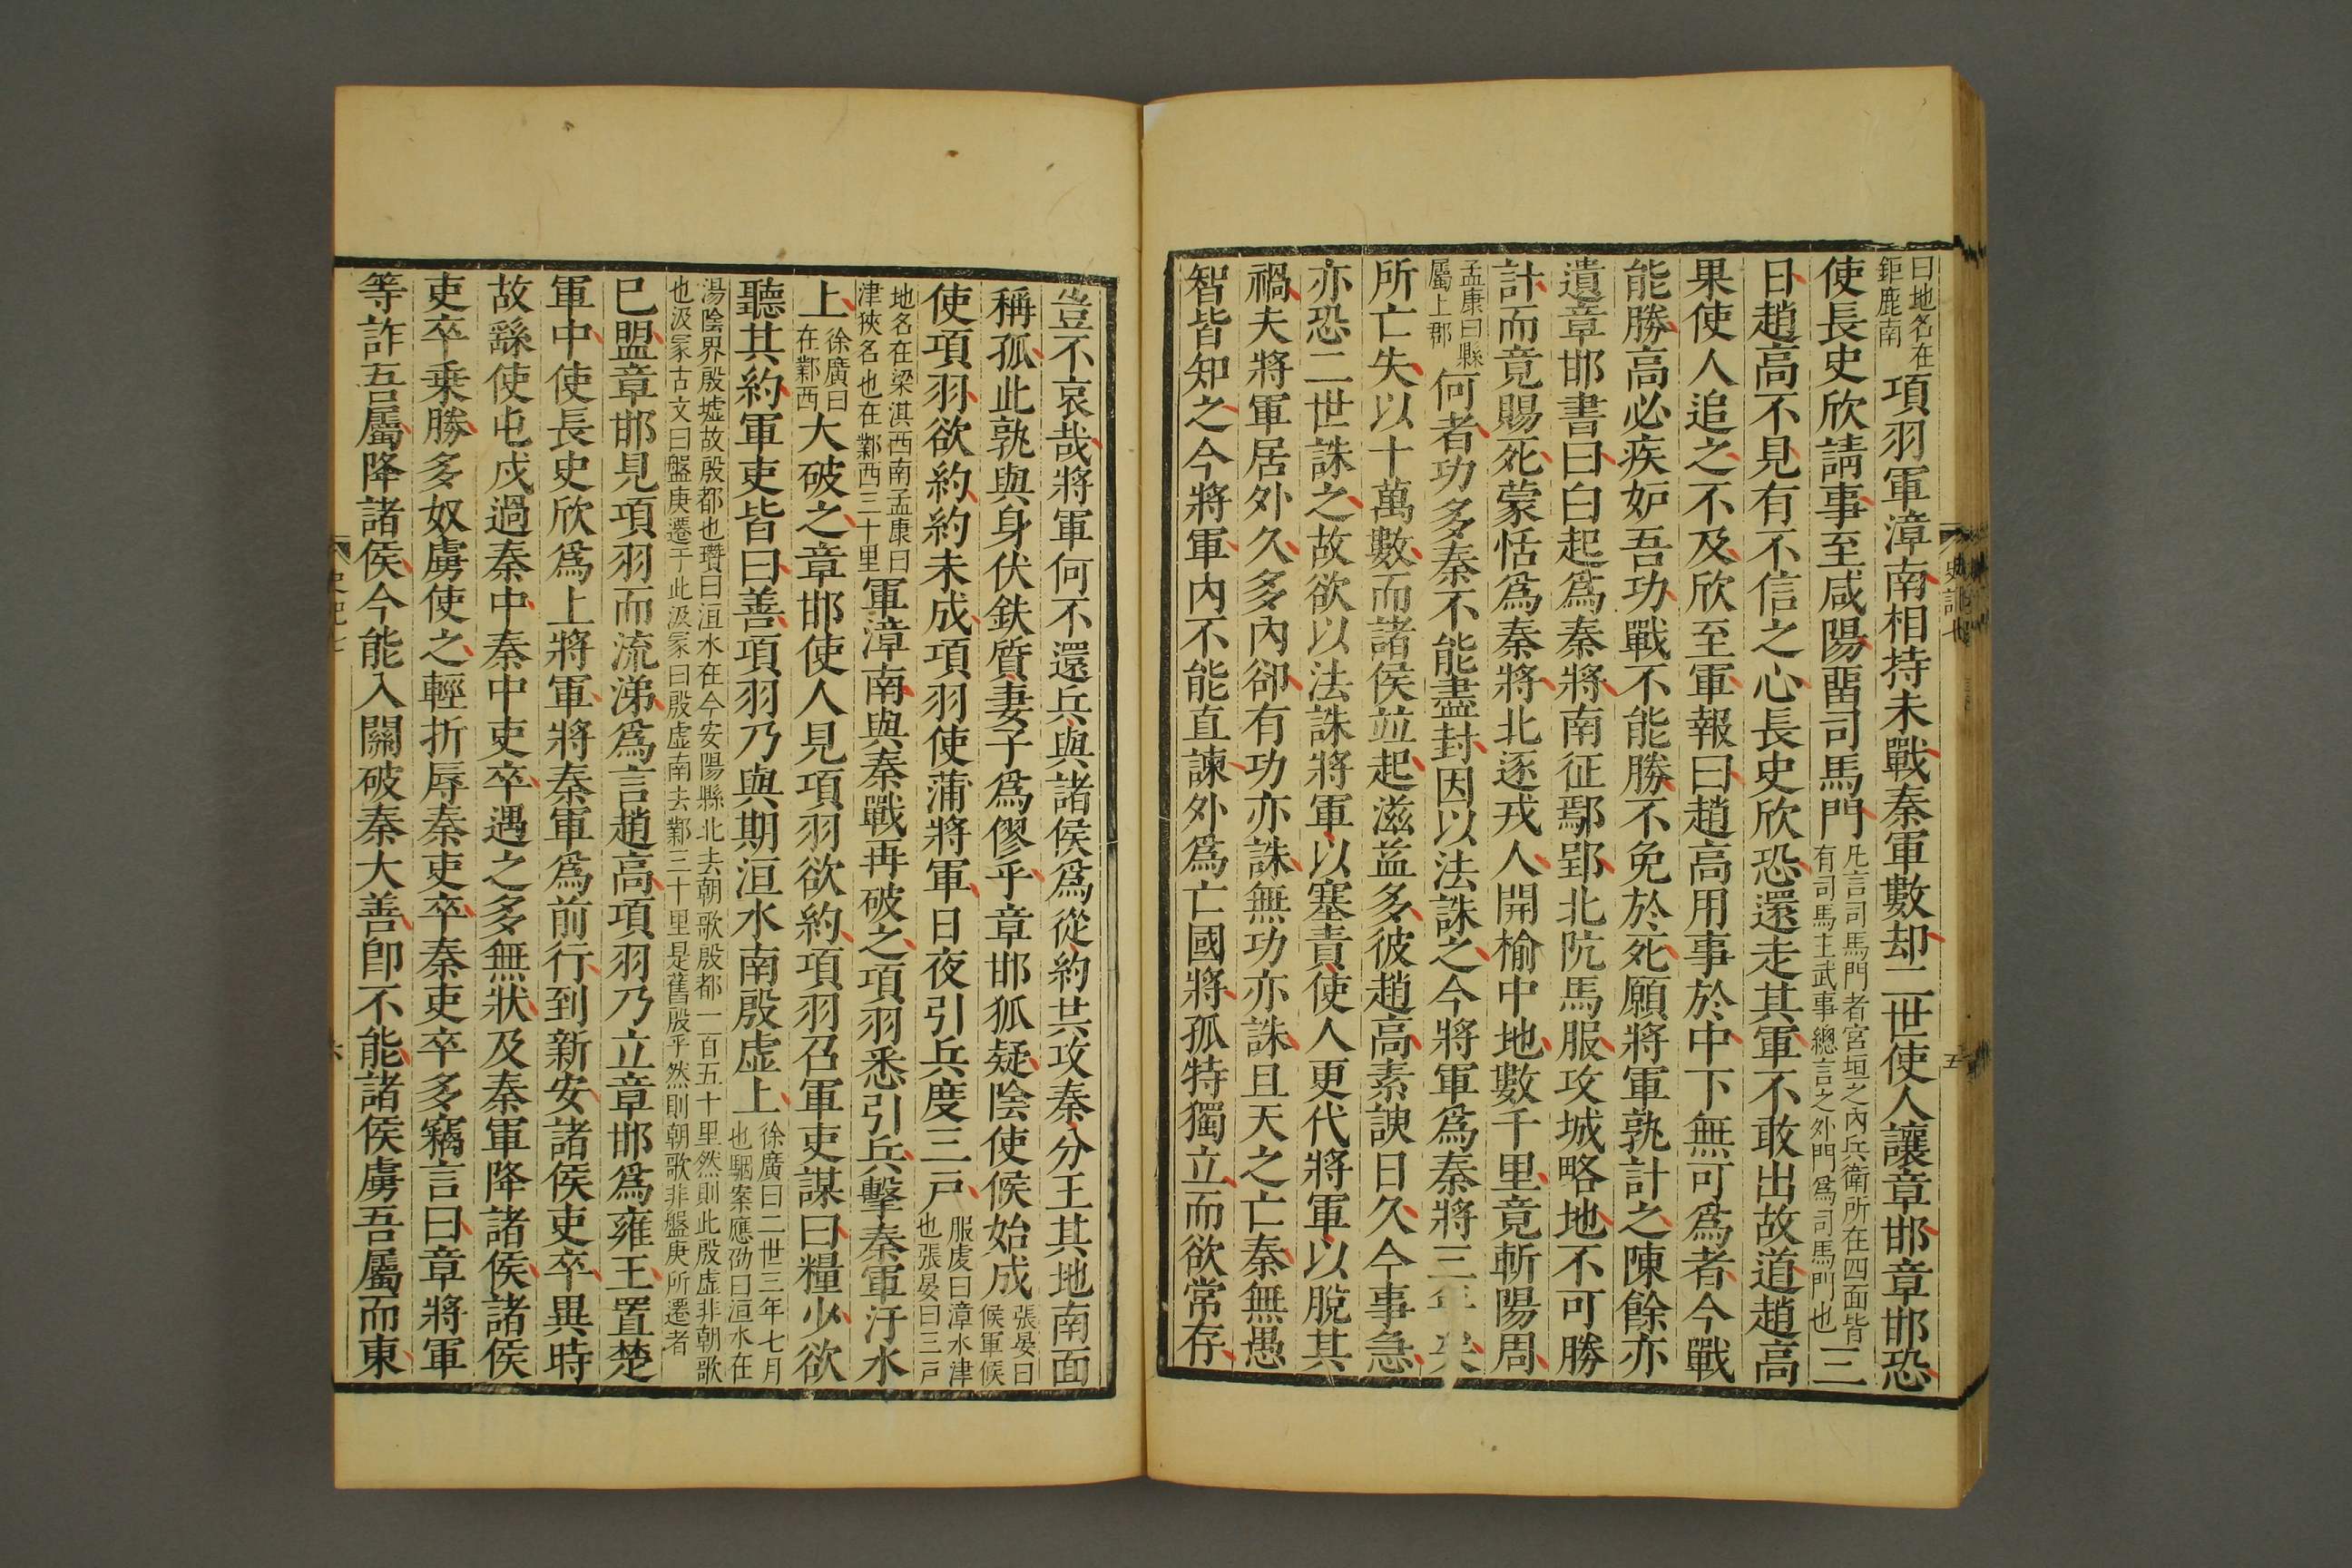 曰地名在鉅鹿南項羽軍漳南相持未戰秦軍數却二世使人讓章邯章邯恐
使長史欣請事至咸陽畱司馬門凡言司馬門者宮垣之內兵衛所在四面皆有司馬主武事總言之外門爲司馬門也三
日趙高不見有不信之心長史欣恐還走其軍不敢出故道趙高
果使人追之不及欣至軍報曰趙高用事於中下無可爲者今戰
能勝高必疾妒吾功戰不能勝不免於死願將軍孰計之陳餘亦
遺章邯書曰白起爲秦將南征鄢郢北阬馬服攻城略地不可勝
計而竟賜死蒙恬爲秦將北逐戎人開榆中地數千里竟斬陽周
孟康曰縣屬上郡何者功多秦不能盡封因以法誅之今將軍爲秦將三年矣
所亡失以十萬數而諸侯並起滋益多彼趙高素諛日久今事急
亦恐二世誅之故欲以法誅將軍以塞責使人更代將軍以脫其
禍夫將軍居外久多內卻有功亦誅無功亦誅且天之亡秦無愚
智皆知之今將軍內不能直諫外爲亡國將孤特獨立而欲常存
史記七
五
豈不哀哉將軍何不還兵與諸侯爲從約共攻秦分王其地南面
稱孤此孰與身伏鈇質妻子爲僇乎章邯狐疑陰使候始成張晏曰候軍候
使項羽欲約約未成項羽使蒲將軍日夜引兵度三戶服虔曰漳水津也張晏曰三戶
地名在梁淇西南孟康曰津狹名也在鄴西三十里軍漳南與秦戰再破之項羽悉引兵擊秦軍汙水
上徐廣曰在鄴西大破之章邯使人見項羽欲約項羽召軍吏謀曰糧少欲
聽其約軍吏皆曰善項羽乃與期洹水南殷虛上徐廣曰二世三年七月也駰案應劭曰洹水在
湯陰界殷墟故殷都也瓚曰洹水在今安陽縣北去朝歌殷都一百五十里然則此殷虛非朝歌也汲冢古文曰盤庚遷于此汲冢曰殷虛南去鄴三十里是舊殷乎然則朝歌非盤庚所遷者
已盟章邯見項羽而流涕爲言趙高項羽乃立章邯爲雍王置楚
軍中使長史欣爲上將軍將秦軍爲前行到新安諸侯吏卒異時
故繇使屯戍過秦中秦中吏卒遇之多無狀及秦軍降諸侯諸侯
吏卒乗勝多奴虜使之輕折辱秦吏卒秦吏卒多竊言曰章將軍
等詐吾屬降諸侯今能入關破秦大善卽不能諸侯虜吾屬而東